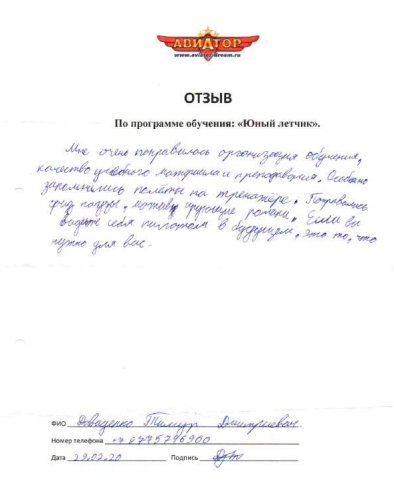 АВИАТОР
www.aviator-dream.ru
ОТЗЫВ
По программе обучения: «Юный летчик».
Мне очень понравилась организация обучения,
качество учебного материала и преподавания. Особенно
запомнились полёты на тренажёре. Понравились
фуд паузы, мотивирующие ролики. Если вы
видите себя пилотом в будущем, это то, что
нужно для вас.
ФИО Доваденко Тимур Дмитриевич
Номер телефона +7 8775746900
Дата 29.02.20 Подпись